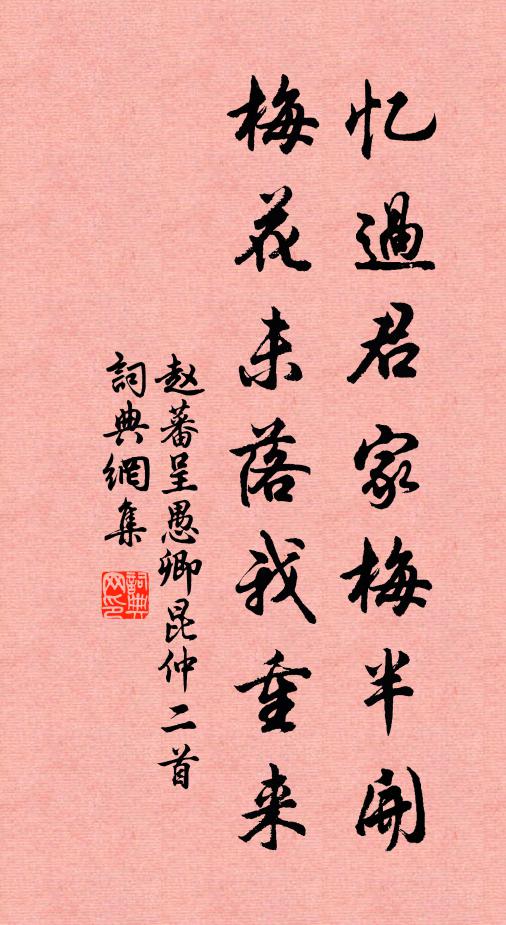 忆過君家梅半開
梅花未落我重来
赵蕃呈愚卿昆仲二首
詞典網集
詞典网印